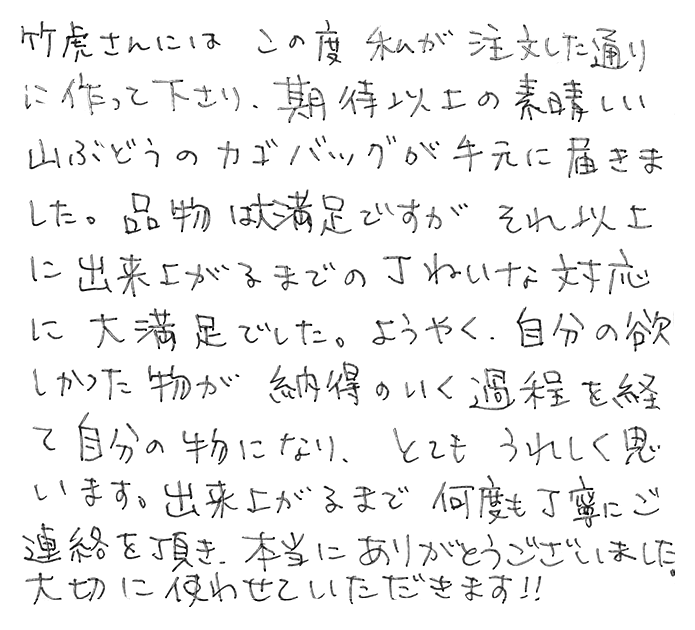 竹虎さんには この度 私が 注文した通り
に作って下さり、期待以上の素晴しい
山ぶどうのカゴバッグが手元に届きま
した。品物は大満足ですが それ以上
に出来上がるまでの丁ねいな対応
に大満足でした。ようやく、自分の欲
しかった物が 納得のいく過程を経
て自分の物になり、とても うれしく思
います。出来上がるまで 何度も丁寧にご
連絡を頂き、本当にありがとうございました。
大切に使わせていただきます!!